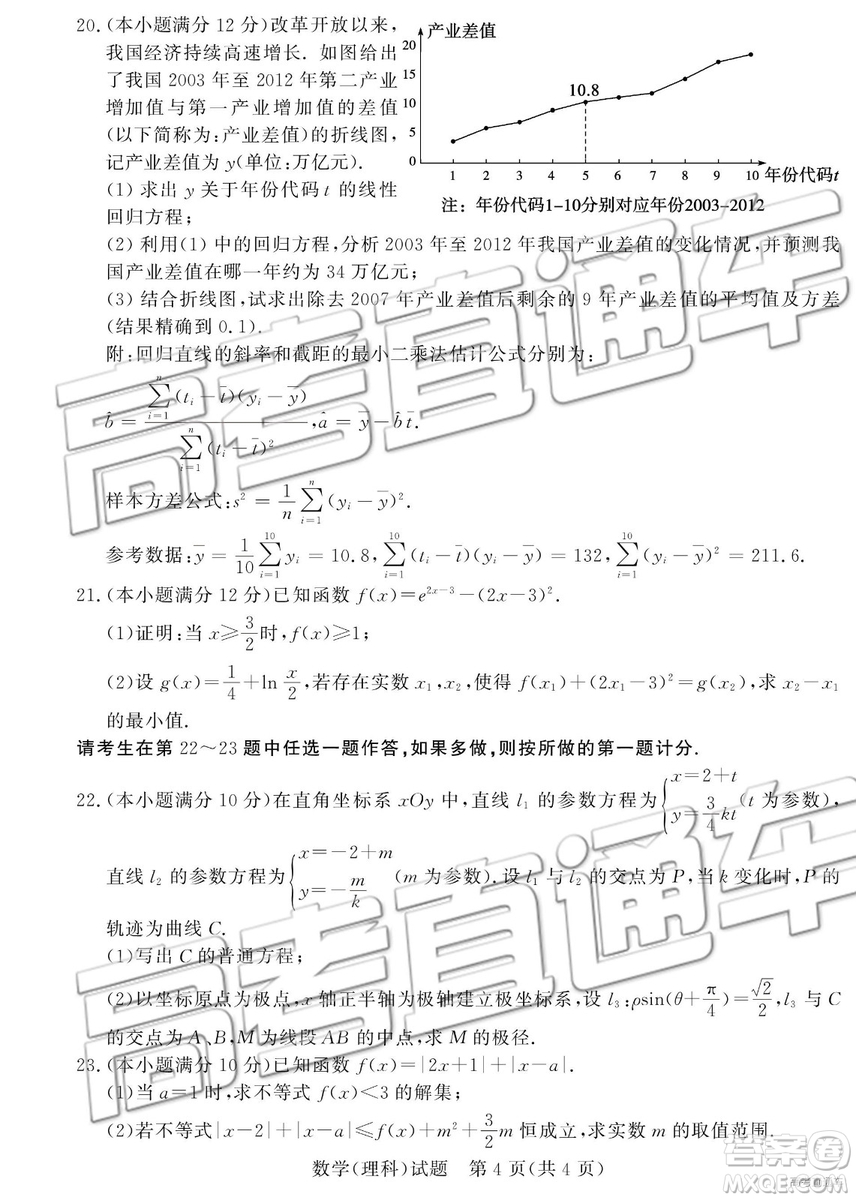 20.(本小题满分 12 分)改革开放以来,
我国经济持续高速增长. 如图给出
了我国 2003 年至 2012 年第二产业
增加值与第一产业增加值的差值
(以下简称为:产业差值)的折线图,
记产业差值为 y(单位:万亿元).
(1) 求出 y 关于年份代码 t 的线性
回归方程;
产业差值
20
15
10
5
0
10.8
1 2 3 4 5 6 7 8 9 10 年份代码t
注: 年份代码1-10分别对应年份2003-2012
(2) 利用(1) 中的回归方程,分析 2003 年至 2012 年我国产业差值的变化情况,并预测我
国产业差值在哪一年约为 34 万亿元;
(3) 结合折线图,试求出除去 2007 年产业差值后剩余的 9 年产业差值的平均值及方差
(结果精确到 0.1).
附:回归直线的斜率和截距的最小二乘法估计公式分别为:
b̂=∑_{i=1}^{n}(t_i-t̄)(y_i-ȳ)/∑_{i=1}^{n}(t_i-t̄)²,â=ȳ-b̂t̄.
样本方差公式:s²=1/n∑_{i=1}^{n}(y_i-ȳ)².
参考数据:ȳ=1/10∑_{i=1}^{10}y_i=10.8,∑_{i=1}^{10}(t_i-t̄)(y_i-ȳ)=132,∑_{i=1}^{10}(y_i-ȳ)²=211.6.
21.(本小题满分 12 分)已知函数 f(x)=e^{2x-3}-(2x-3)².
(1)证明:当 x≥3/2时,f(x)≥1;
(2)设 g(x)=1/4+ln x/2,若存在实数 x₁,x₂,使得 f(x₁)+(2x₁-3)²=g(x₂),求 x₂-x₁
的最小值.
请考生在第 22~23 题中任选一题作答,如果多做,则按所做的第一题计分.
22.(本小题满分 10 分)在直角坐标系 xOy 中,直线 l₁ 的参数方程为{x=2+t y=3/4kt(t 为参数),
直线 l₂ 的参数方程为{x=-2+m y=-m/k(m 为参数).设 l₁ 与 l₂ 的交点为 P,当 k 变化时,P 的
轨迹为曲线 C.
(1)写出 C 的普通方程;
(2)以坐标原点为极点,x 轴正半轴为极轴建立极坐标系,设 l₃:ρsin(θ+π/4)=√2/2,l₃ 与 C
的交点为 A、B,M 为线段 AB 的中点,求 M 的极径.
23.(本小题满分 10 分)已知函数 f(x)=|2x+1|+|x-a|.
(1)当 a=1 时,求不等式 f(x)<3 的解集;
(2)若不等式|x-2|+|x-a|≤f(x)+m²+3/2m 恒成立,求实数 m 的取值范围.
数学(理科)试题 第 4 页(共 4 页)
高考直通车
高考直通车
答案圈
MXQE.COM